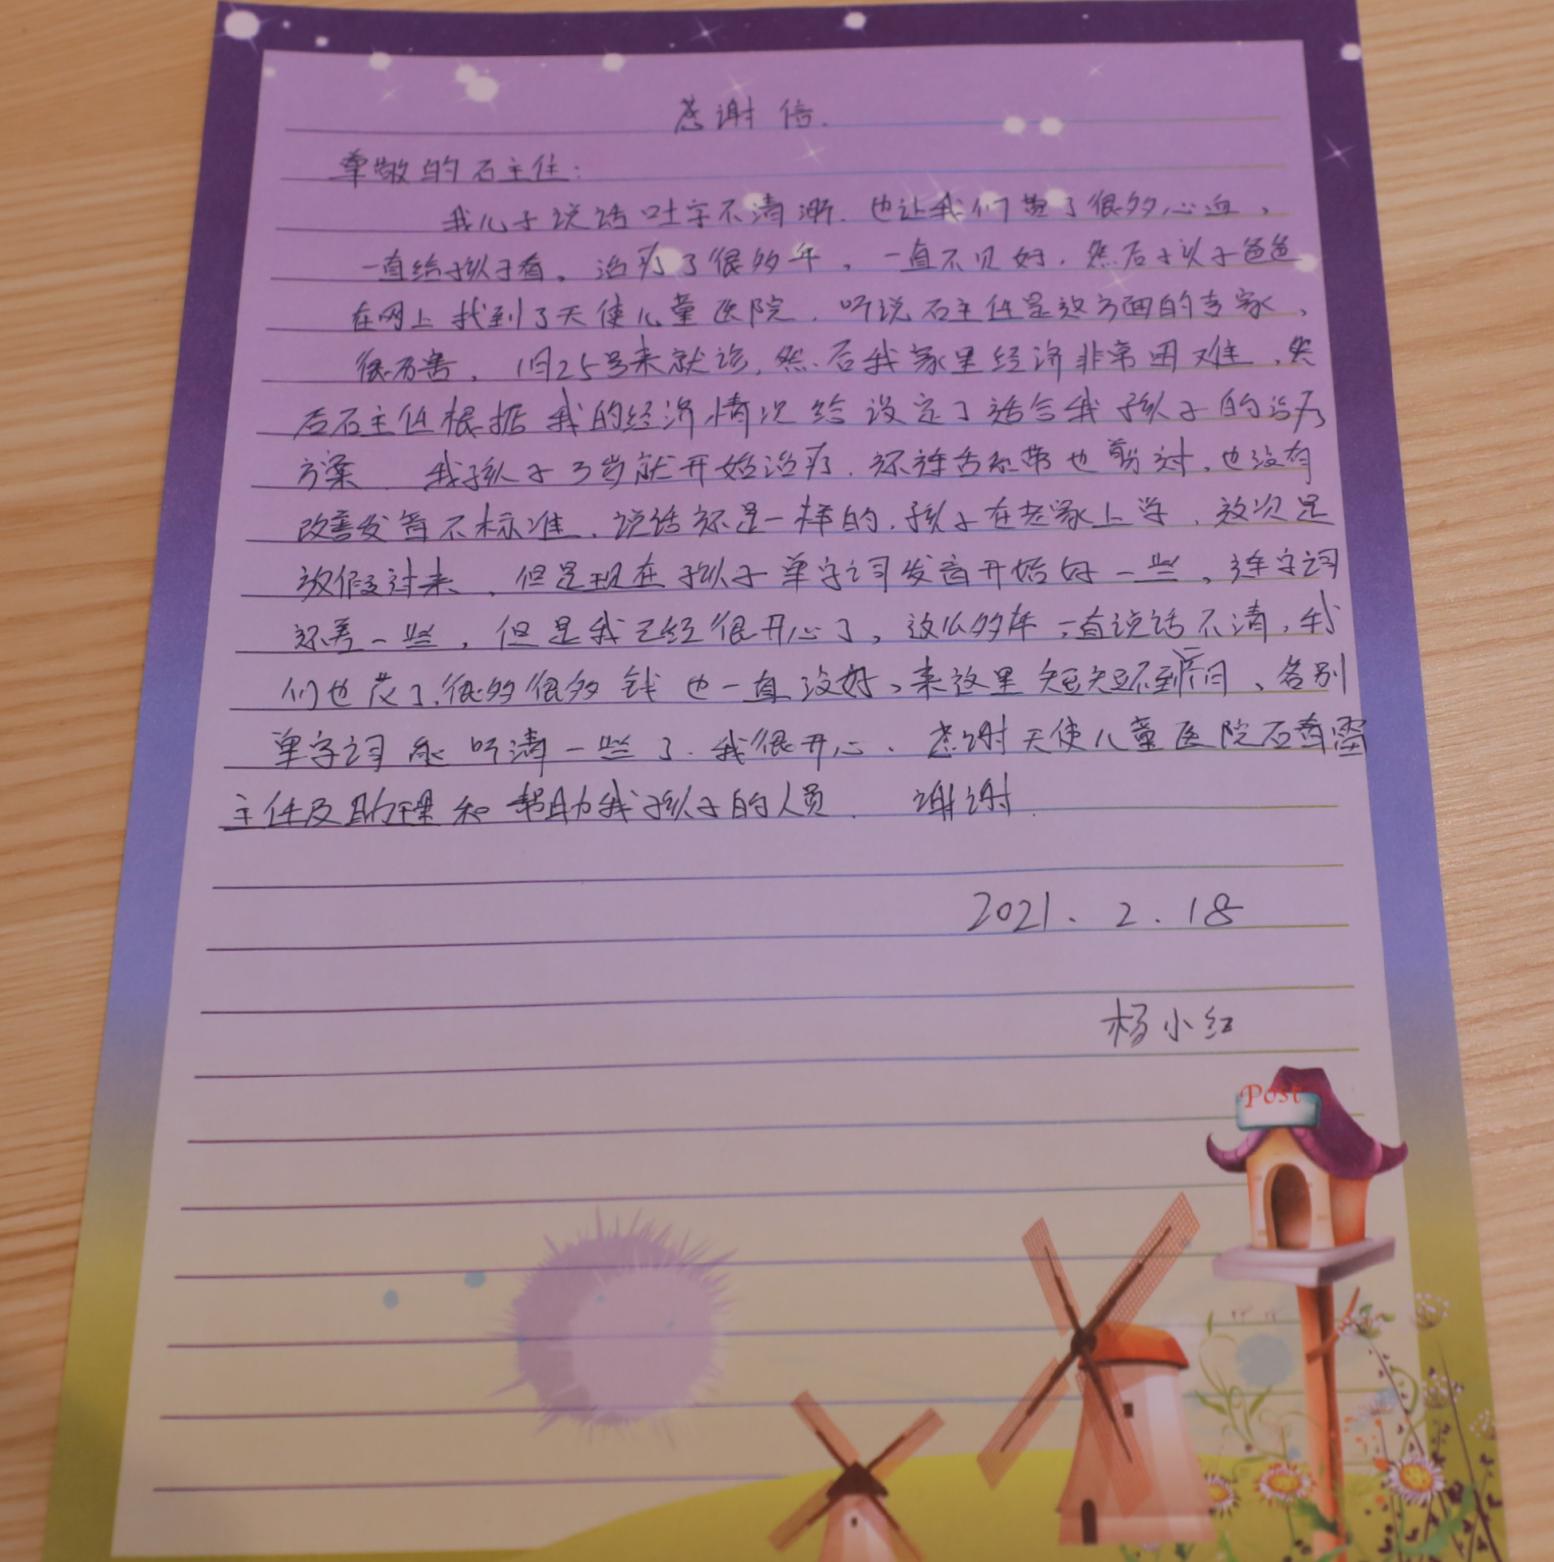 感谢信.
尊敬的石主任:
我儿子说话吐字不清淅.也让我们费了很多心血,
一直给孩子看。治疗了很多年,一直不见好.然后孩子爸爸
在网上找到了天使儿童医院.听说石主任是这方面的专家、
很厉害,1月25号来就诊.然后我家里经济非常困难.然
后石主任根据我的经济情况给设定了适合我孩子的治疗
方案.我孩子3岁就开始治疗.标连舌系带也剪过.也没有
改善发音不标准.说话还是一样的.孩子在老家上学.这次是
放假过来.但是现在孩子单字词发音开始好一些,连字词
还差一些,但是我已经很开心了,这么多年一直说话不清,我
们也花了很多很多钱也一直没好,来这里短短不到一个月、各别
单字词能听清一些了.我很开心.感谢天使儿童医院石
主任及助理和帮助我孩子的人员.谢谢.
2021.2.18
杨小红
Post